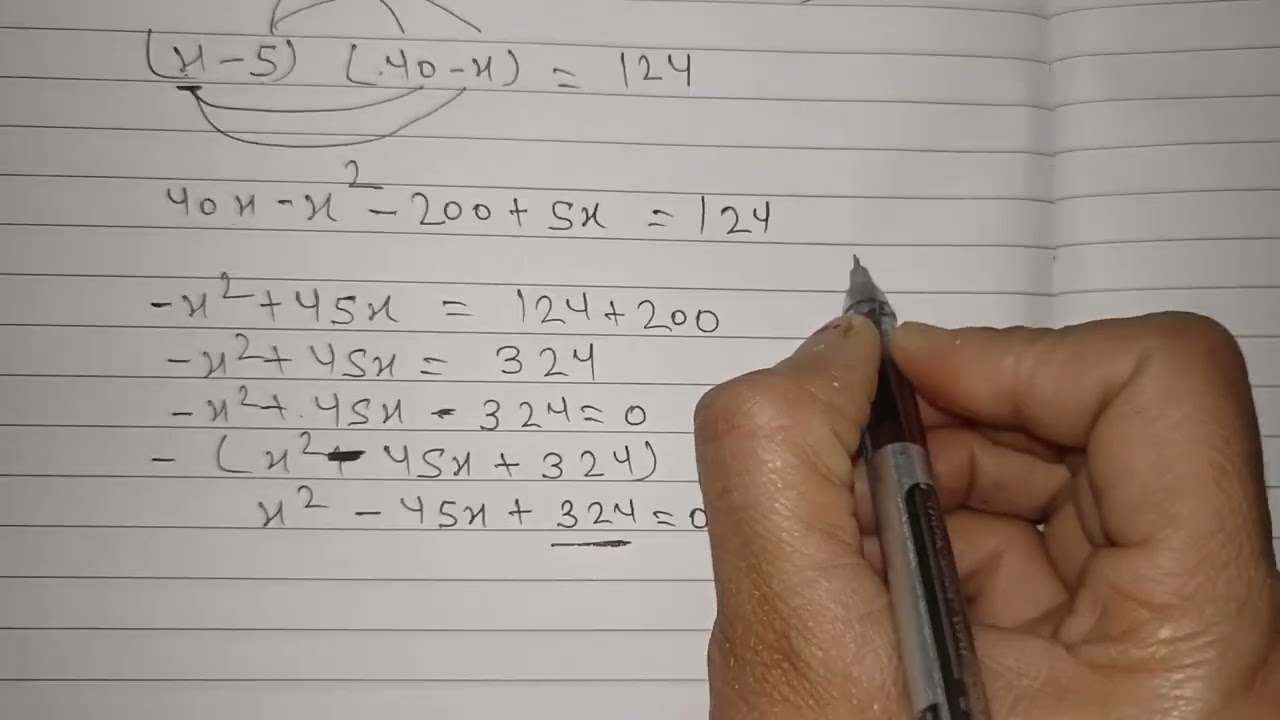 (x-5) (40-x) = 124
40x - x² - 200 + 5x = 124
-x² + 45x = 124 + 200
-x² + 45x = 324
-x² + 45x - 324 = 0
- (x² - 45x + 324)
x² - 45x + 324 = 0